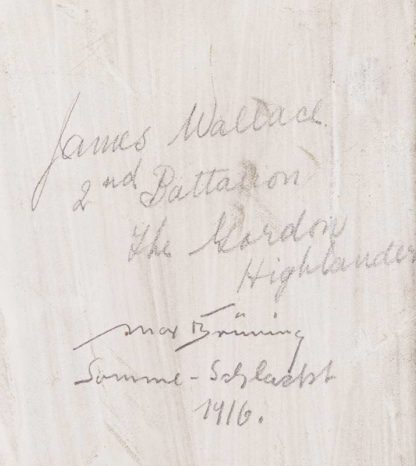 James Wallace
2nd Battalion
The Gordon
Highlanders
Max Brüning
Somme-Schlacht
1916.